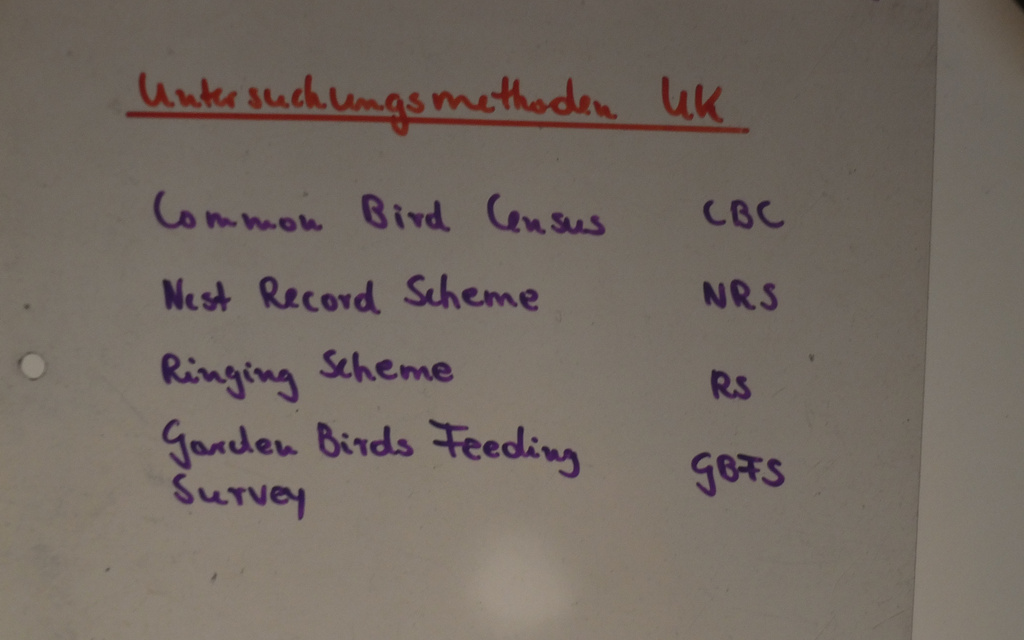 Untersuchungsmethoden UK
Common Bird Census CBC
Nest Record Scheme NRS
Ringing Scheme RS
Garden Birds Feeding GBFS
Survey